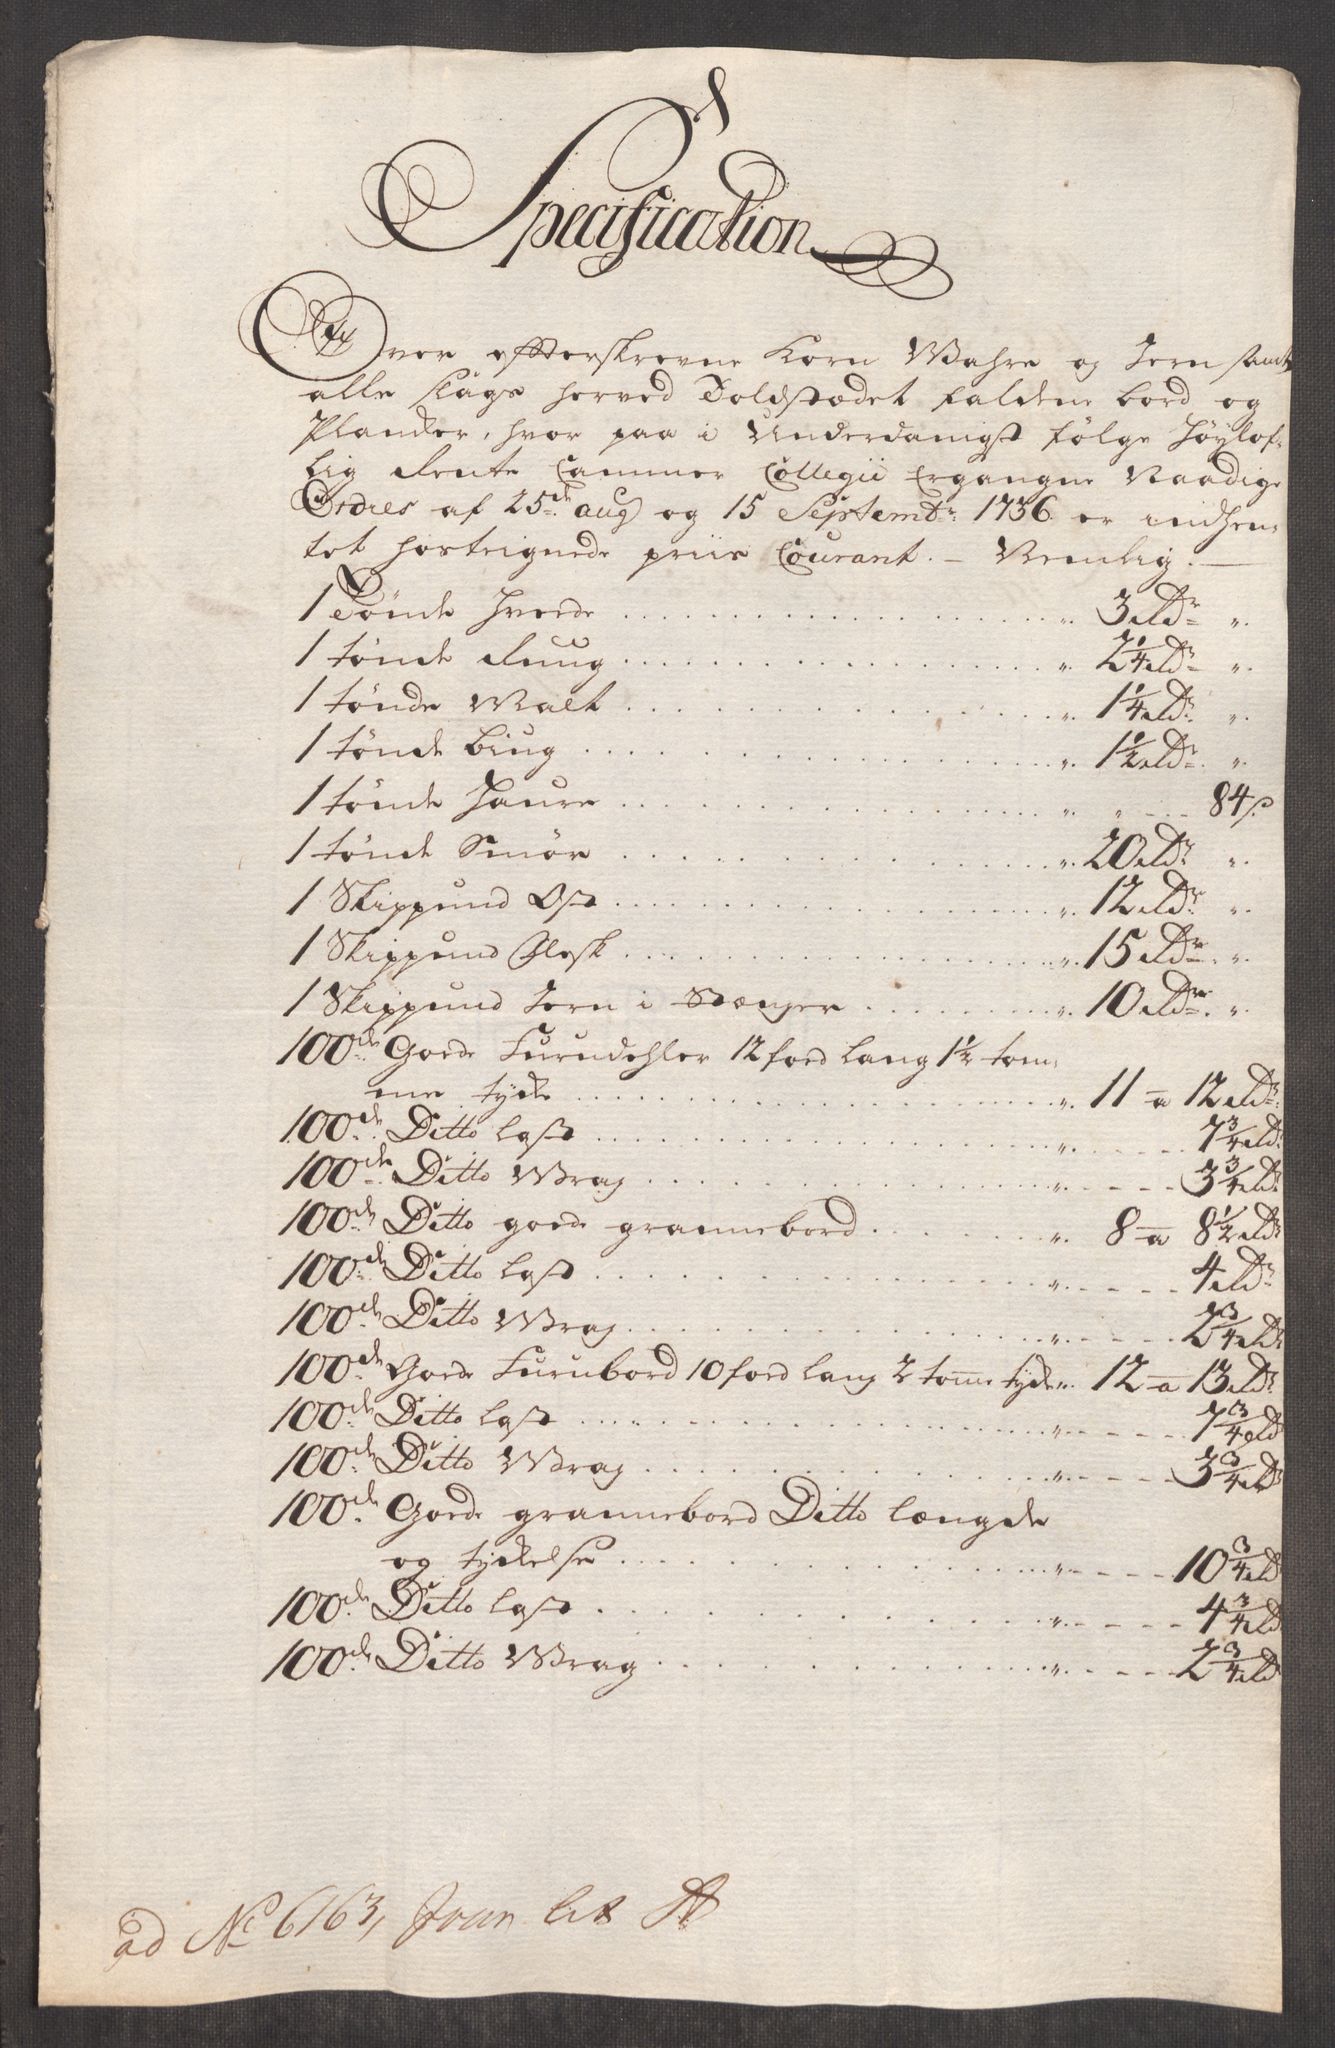 Specification
Over efterskrevne Korn Wahre og Jern samt
alle slags herved Toldstædet faldene bord og
Plancker, hvor paa i Underdanigst følge Høylof-
lig Rente Cammer Collegii Ergangne Naadige
Ordres af 25de aug og 15 Septembr 1736 er indhen-
tet hostegnede priis Courant. – Nemlig. –
1 Tønde Hvede . . . 3 Rdr „
1 tønde Rug . . . 2 1/4 Rdr „
1 tønde Malt . . . 1 1/4 Rdr „
1 tønde biug . . . 1 1/2 Rdr „
1 tønde Haure . . . „ 84 s
1 tønde Smør . . . 20 Rdr „
1 Skippund Ost . . . 12 Rdr „
1 Skippund Flesk . . . 15 Rdr „
1 Skippund Jern i Stænger . . . 10 Rdr „
100de Goede Furudehler 12 foed lang 1 1/2 tom-
me tycke . . . 11 a 12 Rdr
100de Ditto last . . . 7 3/4 Rdr
100de Ditto Wrag . . . 3 3/4 Rdr
100de Ditto goede grannebord . . . 8 a 8 1/2 Rdr
100de Ditto last . . . 4 Rdr
100de Ditto Wrag . . . 2 3/4 Rdr
100de Goede Furubord 10 foed lang 2 tomme tycke „ 12 a 13 Rdr
100de Ditto last . . . 7 3/4 Rdr
100de Ditto Wrag . . . 3 3/4 Rdr
100de Goede grannebord Ditto længde
og tyckelse . . . 10 3/4 Rd
100de Ditto last . . . 4 3/4 Rd
100de Ditto Wrag . . . 2 3/4 Rd
ad No 6163, lit A